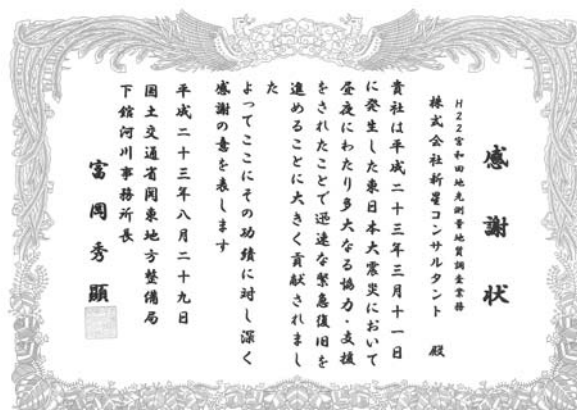 感謝状
H22宮和田地先測量地質調査業務
株式会社新星コンサルタント 殿
貴社は平成二十三年三月十一日
に発生した東日本大震災において
昼夜にわたり多大なる協力・支援
をされたことで迅速な緊急復旧を
進めることに大きく貢献されまし
た
よってここにその功績に対し深く
感謝の意を表します
平成二十三年八月二十九日
国土交通省関東地方整備局
下館河川事務所長
富岡秀顕